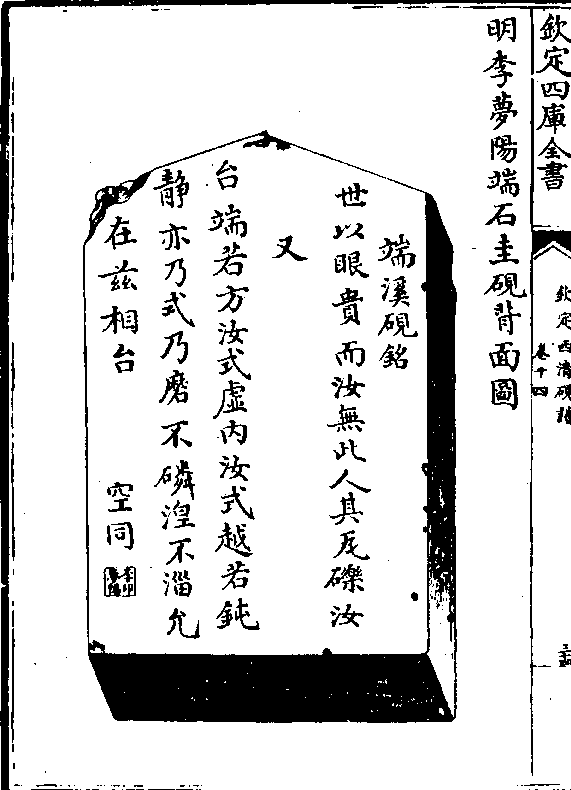 欽定四庫全書
欽定西清硯譜
卷十四
明李夢陽端石圭硯背面圖
端溪硯銘
世以眼貴而汝無此人其瓦礫汝
又
台端若方汝式虛内汝式越若鈍
静亦乃式乃磨不磷湼不淄允
在兹相台
空同